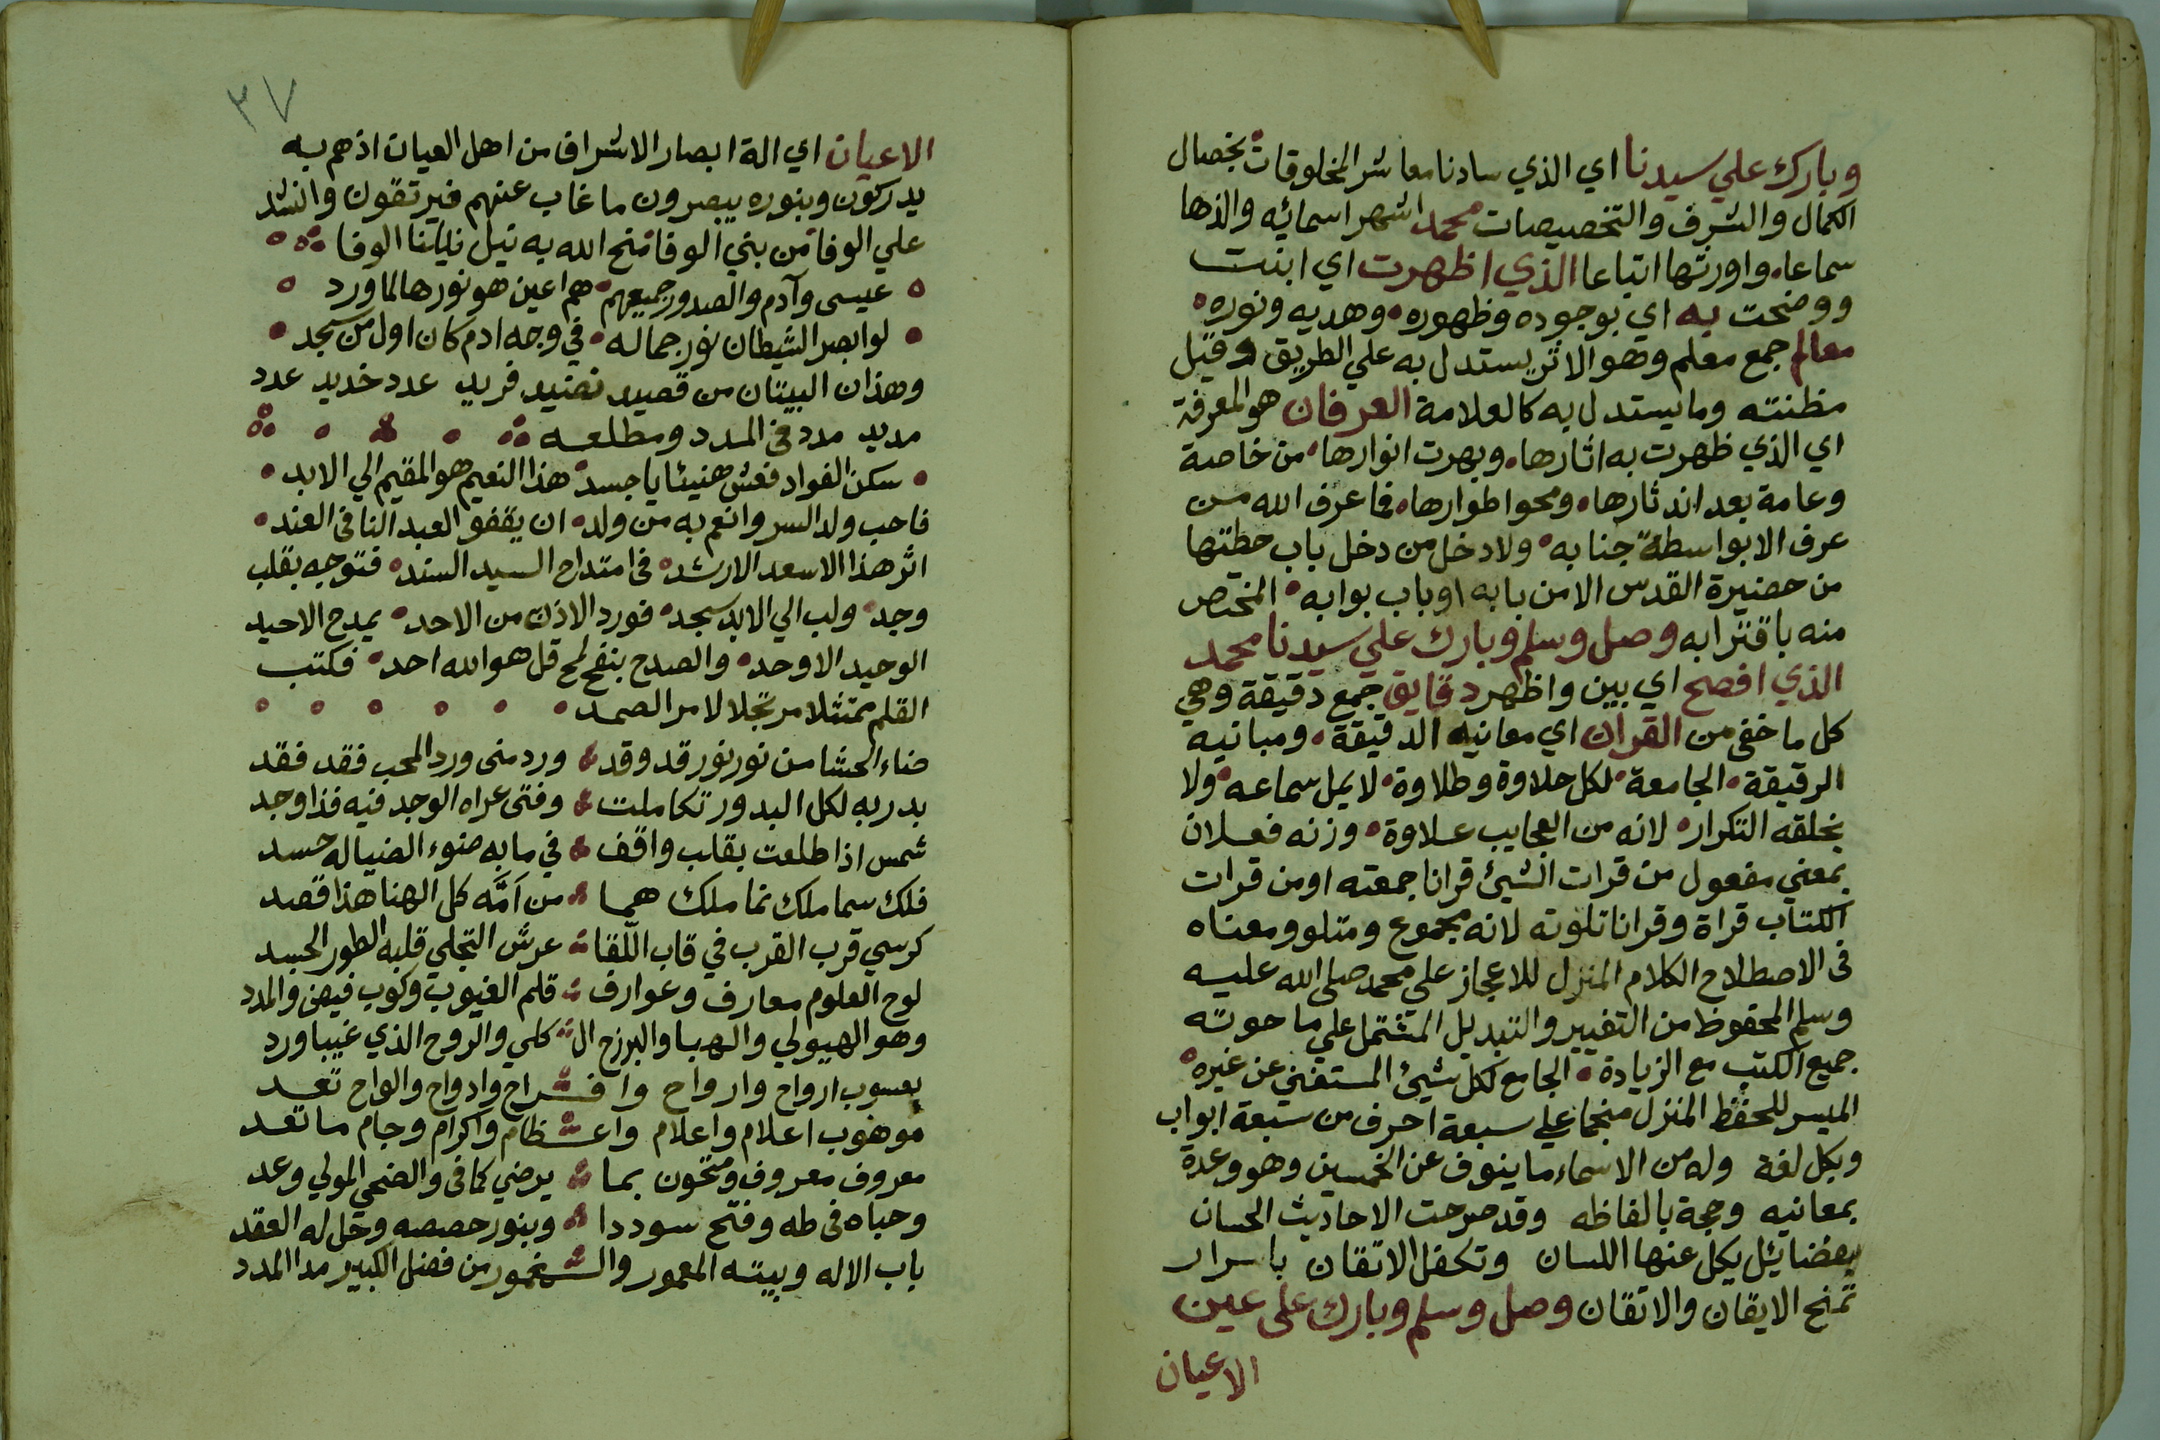 وبارك علي سيدنا اي الذي سادنا معاشر المخلوقات بخصال
الكمال والشرف والتخصيصات محمد اشهر اسمائه والذها
سماعا واورثها اتباعا الذي اظهرت اي ابنت
ووضحت به اي بوجوده وظهوره وهديه ونوره
معالم جمع معلم وهو الاثر يستدل به علي الطريق وقيل
مظنته وما يستدل به كالعلامة العرفان هو المعرفة
اي الذي ظهرت به اثارها وبهرت انوارها من خاصة
وعامة بعد اندثارها ومحو اطوارها فما عرف الله من
عرف الا بواسطة جنابه ولا دخل من دخل باب حطتها
من حضيرة القدس الا من بابه او باب بوابه المختص
منه باقترابه وصل وسلم وبارك علي سيدنا محمد
الذي افصح اي بين واظهر دقايق جمع دقيقة وهي
كل ما خفي من القران اي معانيه الدقيقة ومبانيه
الرقيقة الجامعة لكل حلاوة وطلاوة لا يمل سماعه ولا
يخلقه التكرار لانه من العجايب علاوة وزنه فعلان
بمعني مفعول من قرات الشيئ قرانا جمعته او من قرات
الكتاب قراة وقرانا تلوته لانه مجموع ومتلو ومعناه
في الاصطلاح الكلام المنزل للاعجاز علي محمد صلي الله عليه
وسلم المحفوظ من التغيير والتبديل المشتمل علي ما حوته
جميع الكتب مع الزيادة الجامع لكل شيئ المستغني عن غيره
الميسر للحفظ المنزل منجما علي سبعة احرف من سبعة ابواب
وبكل لغة وله من الاسماء ما ينوف عن الخمسين وهو وعدة
بمعانيه وحجة بالفاظه وقد صرحت الاحاديث الحسان
بفضايئل يكل عنها اللسان وتكفل الاتقان باسرار
تمنح الايقان والاتقان وصل وسلم وبارك علي عين
الاعيان
٣٧
الاعيان اي الة ابصار الاشراف من اهل العيان اذ هم به
يدركون وبنوره يبصرون ما غاب عنهم فيرتقون وانشد
علي الوفا من بني الوفا منح الله به نيل نيلنا الوفا
عيسى وآدم والصدور جميعهم هم اعين هو نورها لما ورد
لو ابصر الشيطان نور جماله في وجه ادم كان اول من سجد
وهذان البيتان من قصيد نضيد فريد عدد خديد عدد
مديد مدد في المدد ومطلعه
سكن الفواد فعش هنيئا يا جسد هذا النعيم هو المقيم الي الابد
فاحب ولد السر وانعم به من ولد ان يقفو العبد النافي العند
اثر هذا الاسعد الارشد في امتداح السيد السند فتوجه بقلب
وجد ولب الي الابد سجد فورد الاذن من الاحد يمدح الاحيد
الوحيد الاوحد والصدح بنفح لمح قل هو الله احد فكتب
القلم ممتثلا مرتجلا لامر الصمد
ضاء الحشا من نور نور قد وقد ورد مني ورد المحب فقد فقد
بدر به لكل البدور تكاملت وفتي عراه الوجد فيه فذا وجد
شمس اذا طلعت بقلب واقف في ما به ضوء الضيا له حسد
فلك سما ملك نما ملك هما من اَمَّه كل الهنا هذا قصد
كرسي قرب القرب في قاب اللقا عرش التجلي قلبه الطور الجسد
لوح العلوم معارف وعوارف قلم الغيوب وكوب فيض والمدد
وهو الهيولي والهبا والبرزخ ال كلي والروح الذي غيبا ورد
يعسوب ارواح وارواح وا فراح وادواح والواح تعد
موهوب اعلام واعلام واعظام واكرام وجام ما تعد
معروف معروف وممنون بما يرضي كما في والضحي المولي وعد
وحباه في طه وفتح سوددا وبنور حصصه وحل له العقد
باب الاله وبيته المعمور والمغمور من فضل الكبير مدا المدد